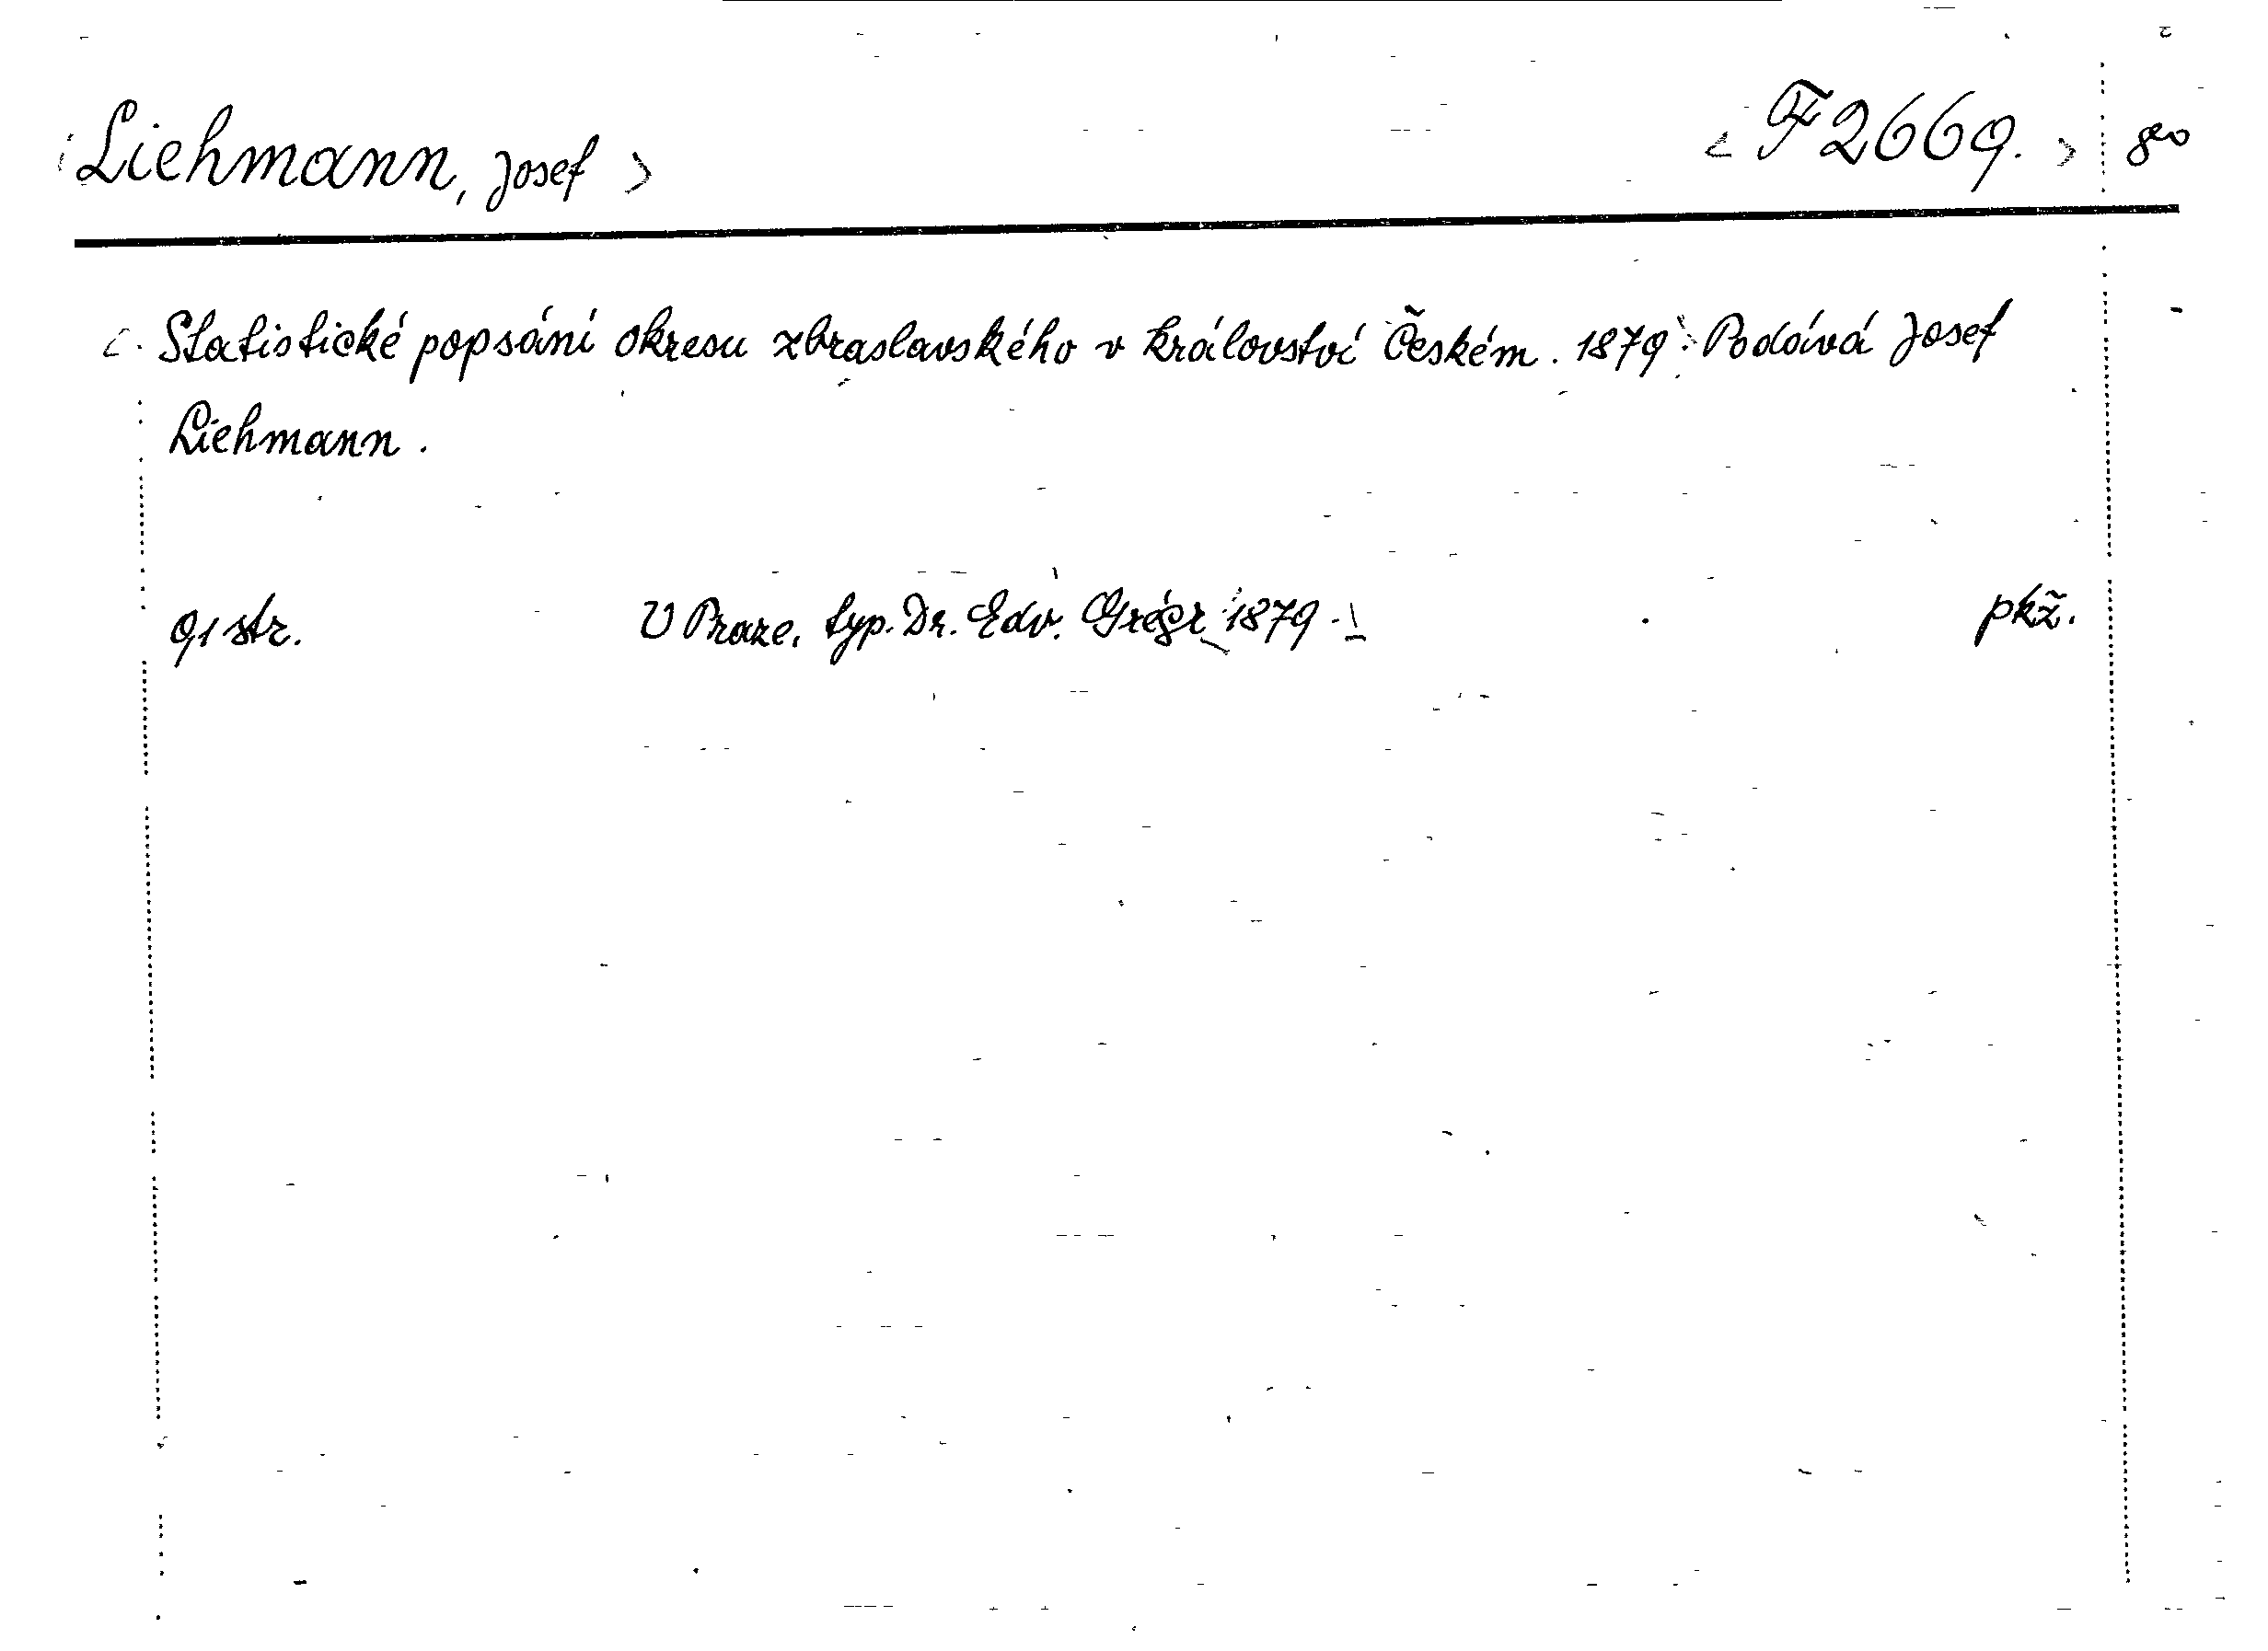 Liehmann, Josef > < F 2669. > 8º
Statistické popsání okresu zbraslavského v království Českém. 1879. Podává Josef
Liehmann.
91 str. V Praze, typ. Dr. Edv. Grégr 1879. pkž.